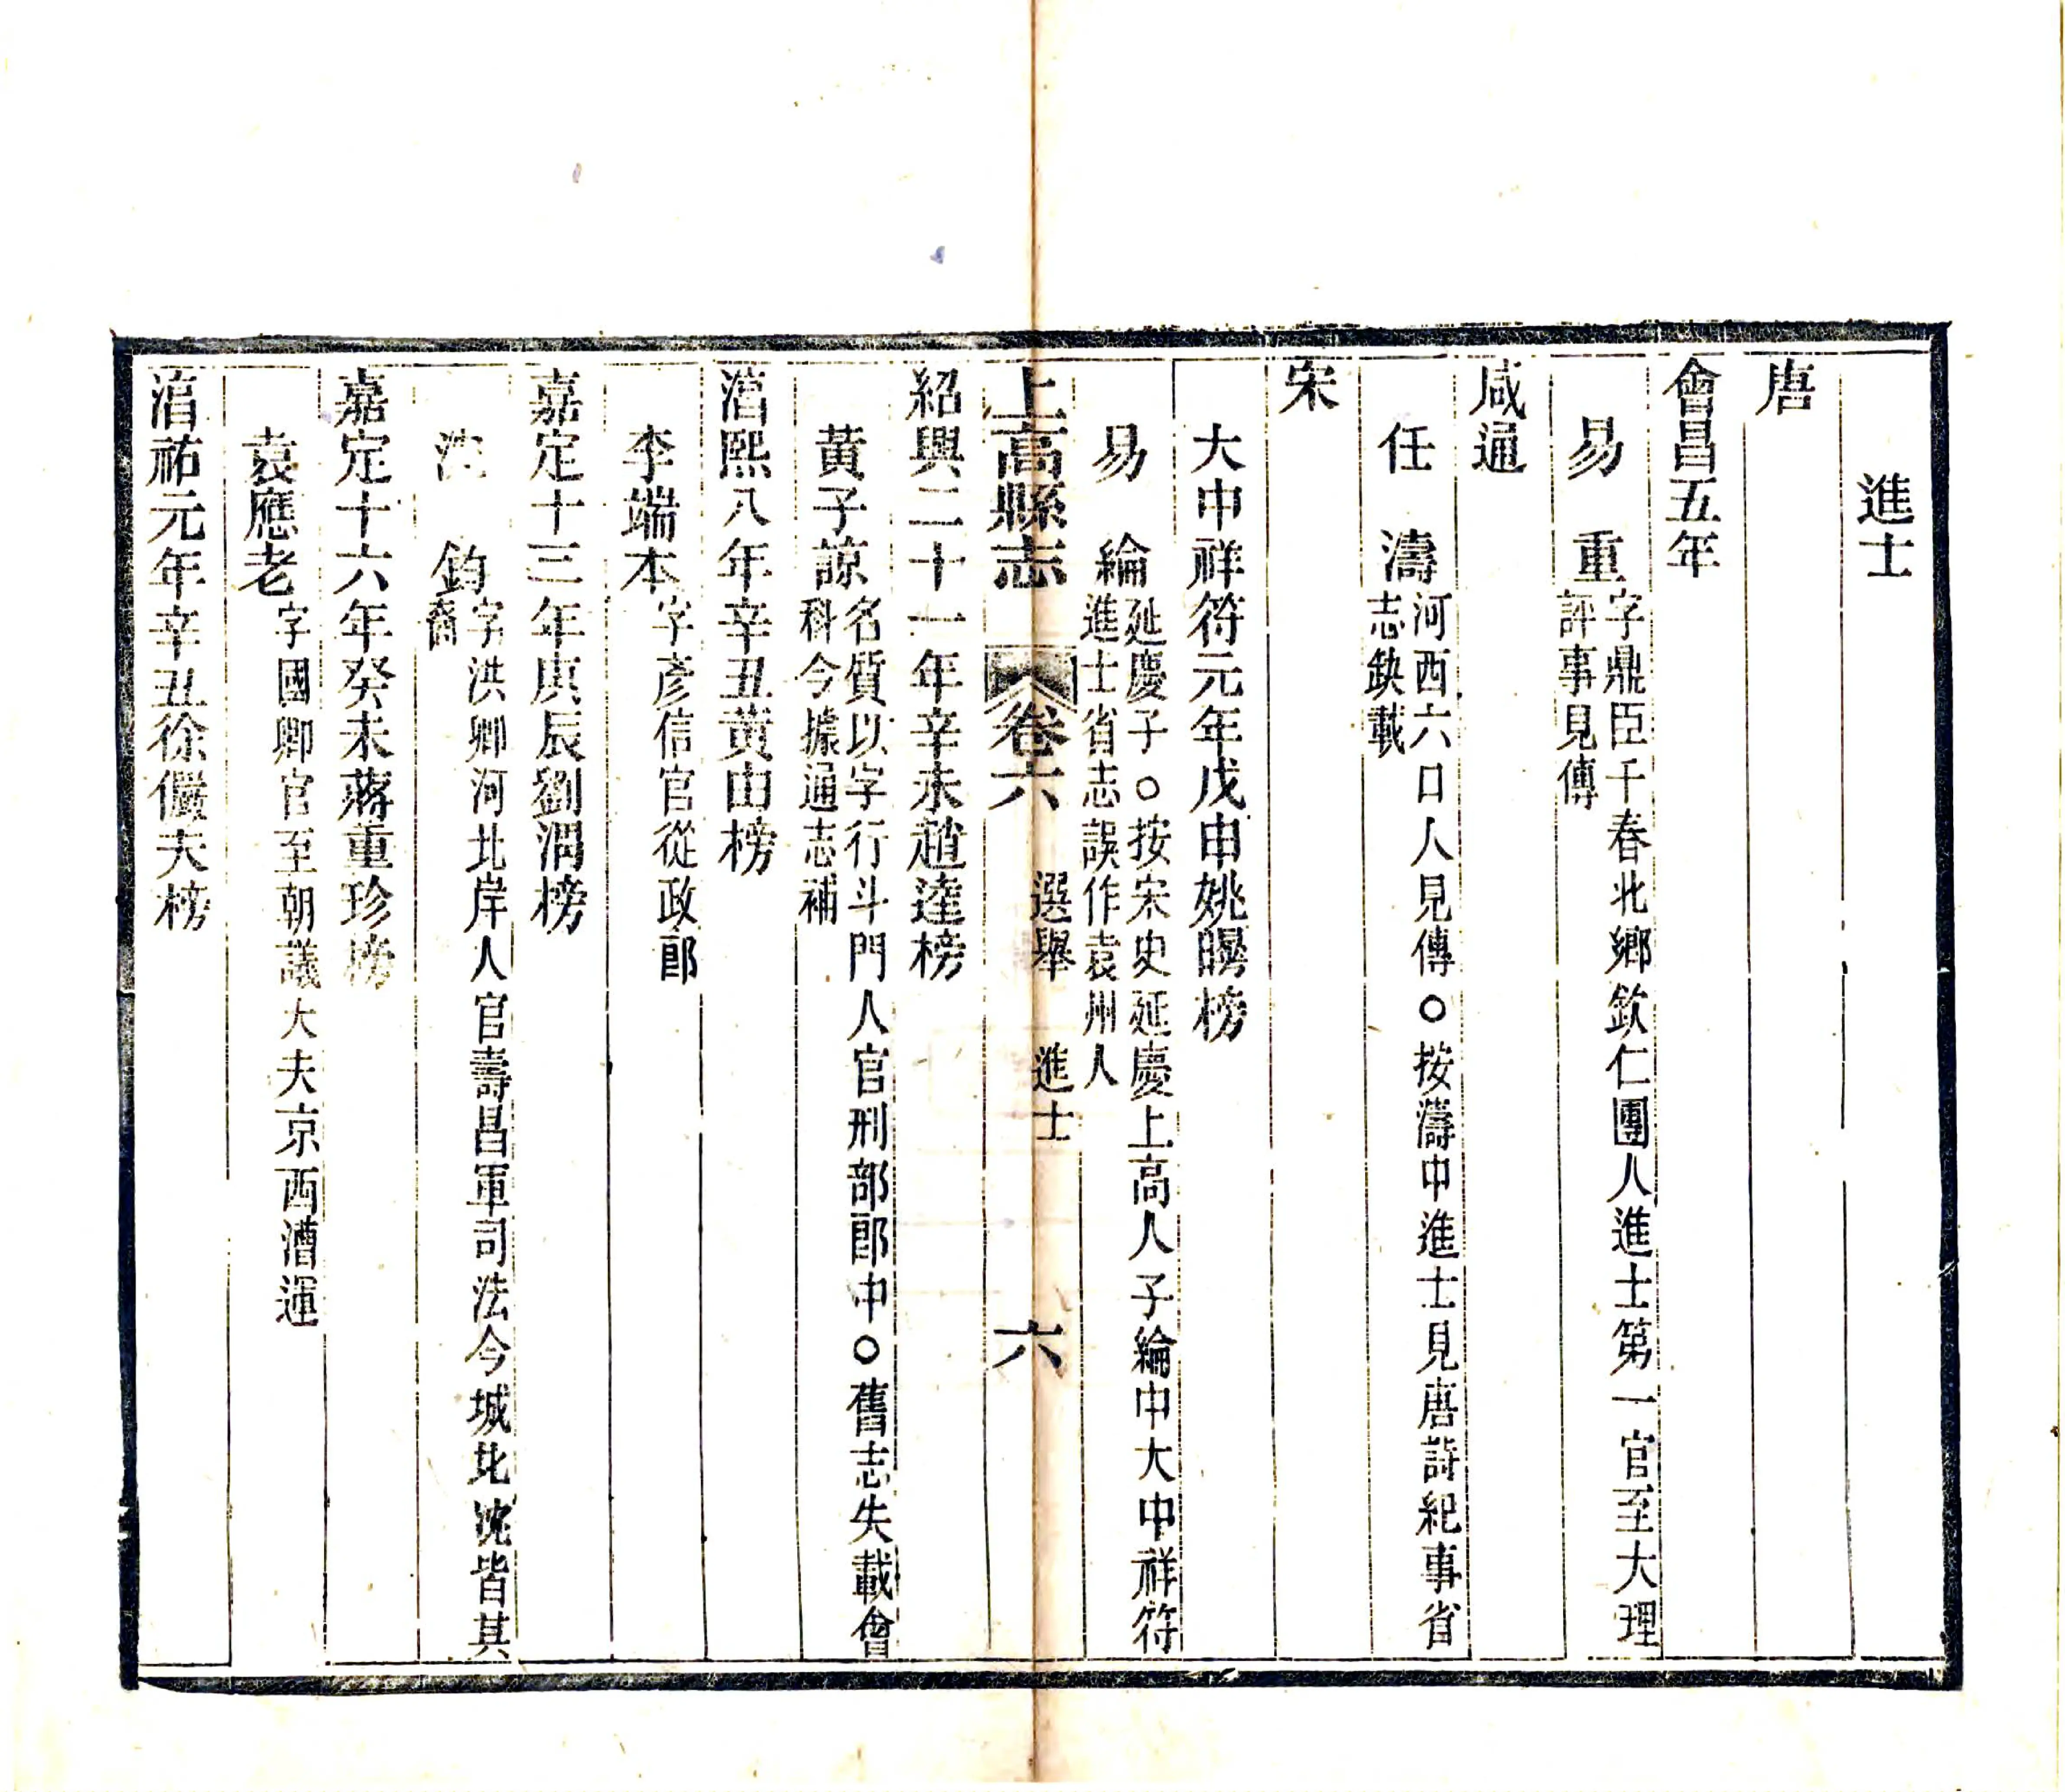 進士
唐
會昌五年
易重字鼎臣千春北鄉欽仁團人進士第一官至大理
評事見傳
咸通
任濤河西六口人見傳○按濤中進士見唐詩紀事省
志缺載
宋
大中祥符元年戊申姚曄榜
易綸延慶子○按宋史延慶上高人子綸中大中祥符
進士省志誤作袁州人
上高縣志 卷六 選舉 進士 六
紹興二十一年辛未趙逵榜
黃子諒名質以字行斗門人官刑部郎中○舊志失載會
科今據通志補
淯熙八年辛丑黃由榜
李端本字彥信官從政郎
嘉定十三年庚辰劉渭榜
沈鈞字洪卿河北岸人官壽昌軍司法今城北沈皆其
裔
嘉定十六年癸未蔣重珍榜
袁應老字國卿官至朝議大夫京西漕運
淯祐元年辛丑徐儼夫榜